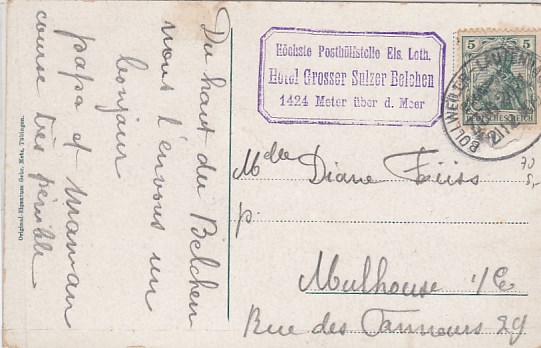 Du haut du Belchen
nous t'envoyons un
bonjour
papa et maman
course très pénible
Original-Eigentum Gebr. Metz, Tübingen.
Höchste Posthülfstelle Els. Loth.
Hotel Grosser Sulzer Belchen
1424 Meter über d. Meer
5 5
DEUTSCHES REICH
BOLLWEILER LAUTENBACH
Mlle Diane Füss
p.
Mulhouse i/E
Rue des Tanneurs 29
70